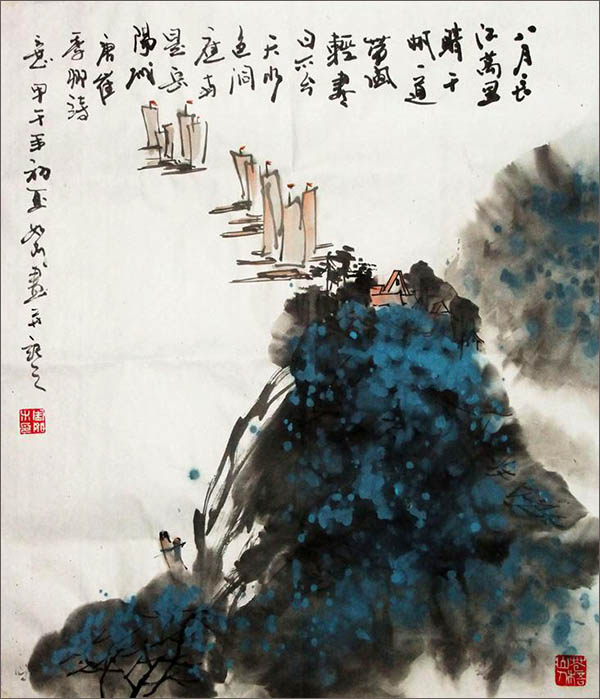 八月長
江萬里
晴千
帆一道
帶風
輕盡
日不分
天水
色洞
庭南
是岳
陽城
唐崔
季卿詩
意甲午年初夏畫并記之